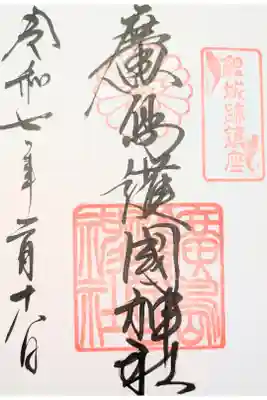 鯉城跡鎮座
廣島護國神社
廣島
護國
神社
令和七年二月十八日